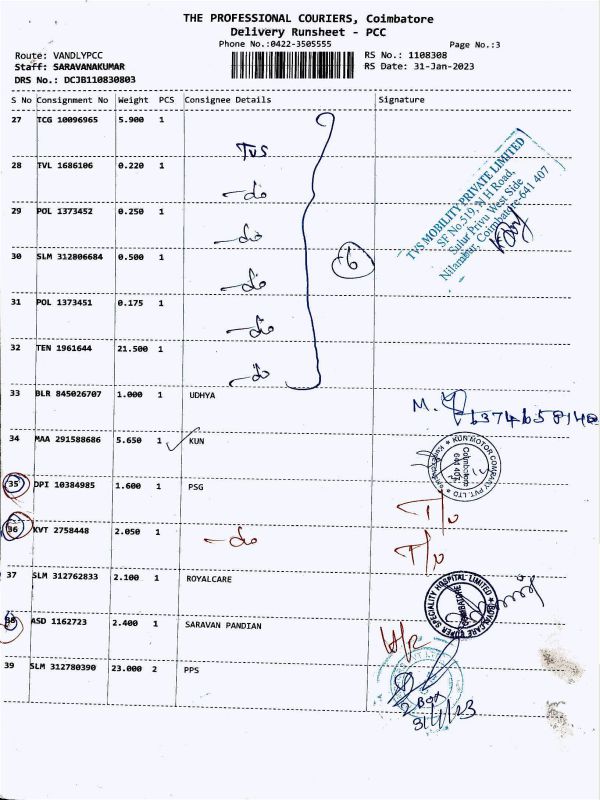 THE PROFESSIONAL COURIERS, Coimbatore
Delivery Runsheet - PCC
Phone No.:0422-3505555
Page No.:3
Route: VANDLYPCC
Staff: SARAVANAKUMAR
DRS No.: DCJB110830803
RS No.: 1108308
RS Date: 31-Jan-2023
S No Consignment No Weight PCS Consignee Details Signature
27 TCG 10096965 5.900 1 TVS
28 TVL 1686106 0.220 1 -do
29 POL 1373452 0.250 1 -do
30 SLM 312806684 0.500 1 -do
31 POL 1373451 0.175 1 -do
32 TEN 1961644 21.500 1 -do
6
TVS MOBILITY PRIVATE LIMITED
SF No 519, N H Road,
Sulur Privu West Side
Nilambur, Coimbatore-641 407
33 BLR 845026707 1.000 1 UDHYA
34 MAA 291588686 5.650 1 KUN
KUN MOTOR COMPANY PVT. LTD
Coimbatore
641 407
35 DPI 10384985 1.600 1 PSG
36 KVT 2758448 2.050 1 -do
37 SLM 312762833 2.100 1 ROYALCARE
ROYALCARE SUPER SPECIALITY HOSPITAL LIMITED
38 ASD 1162723 2.400 1 SARAVAN PANDIAN
39 SLM 312780390 23.000 2 PPS
2 Box
31/1/23